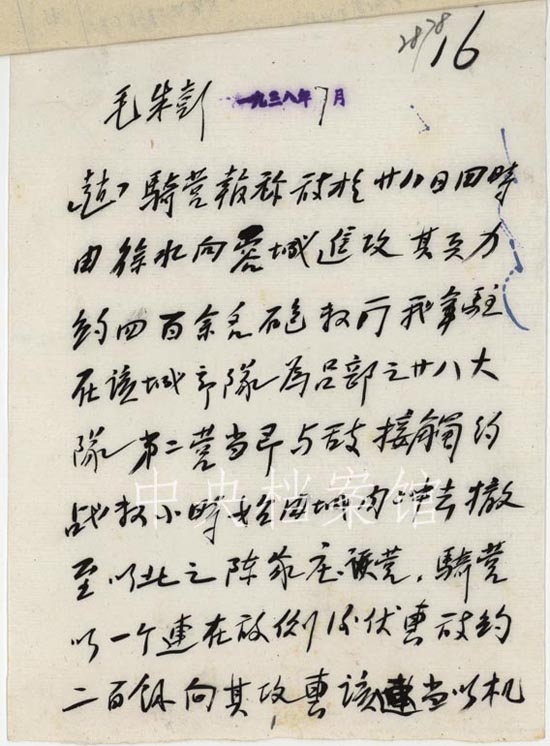 2878
16
毛朱彭 一九三八年7月
赵、骑营报称敌于廿八日四时
由徐水向容城進攻其兵力
约四百余名砲数门我军駐
在该城部隊为吕部之廿八大
隊第二营当即与敌接触约
战数小時始由城内冲去撤
至以北之陈家庄该营、騎营
以一个連在敌侧后伏击敌约
二百馀向其攻击该連当以机
中央档案馆